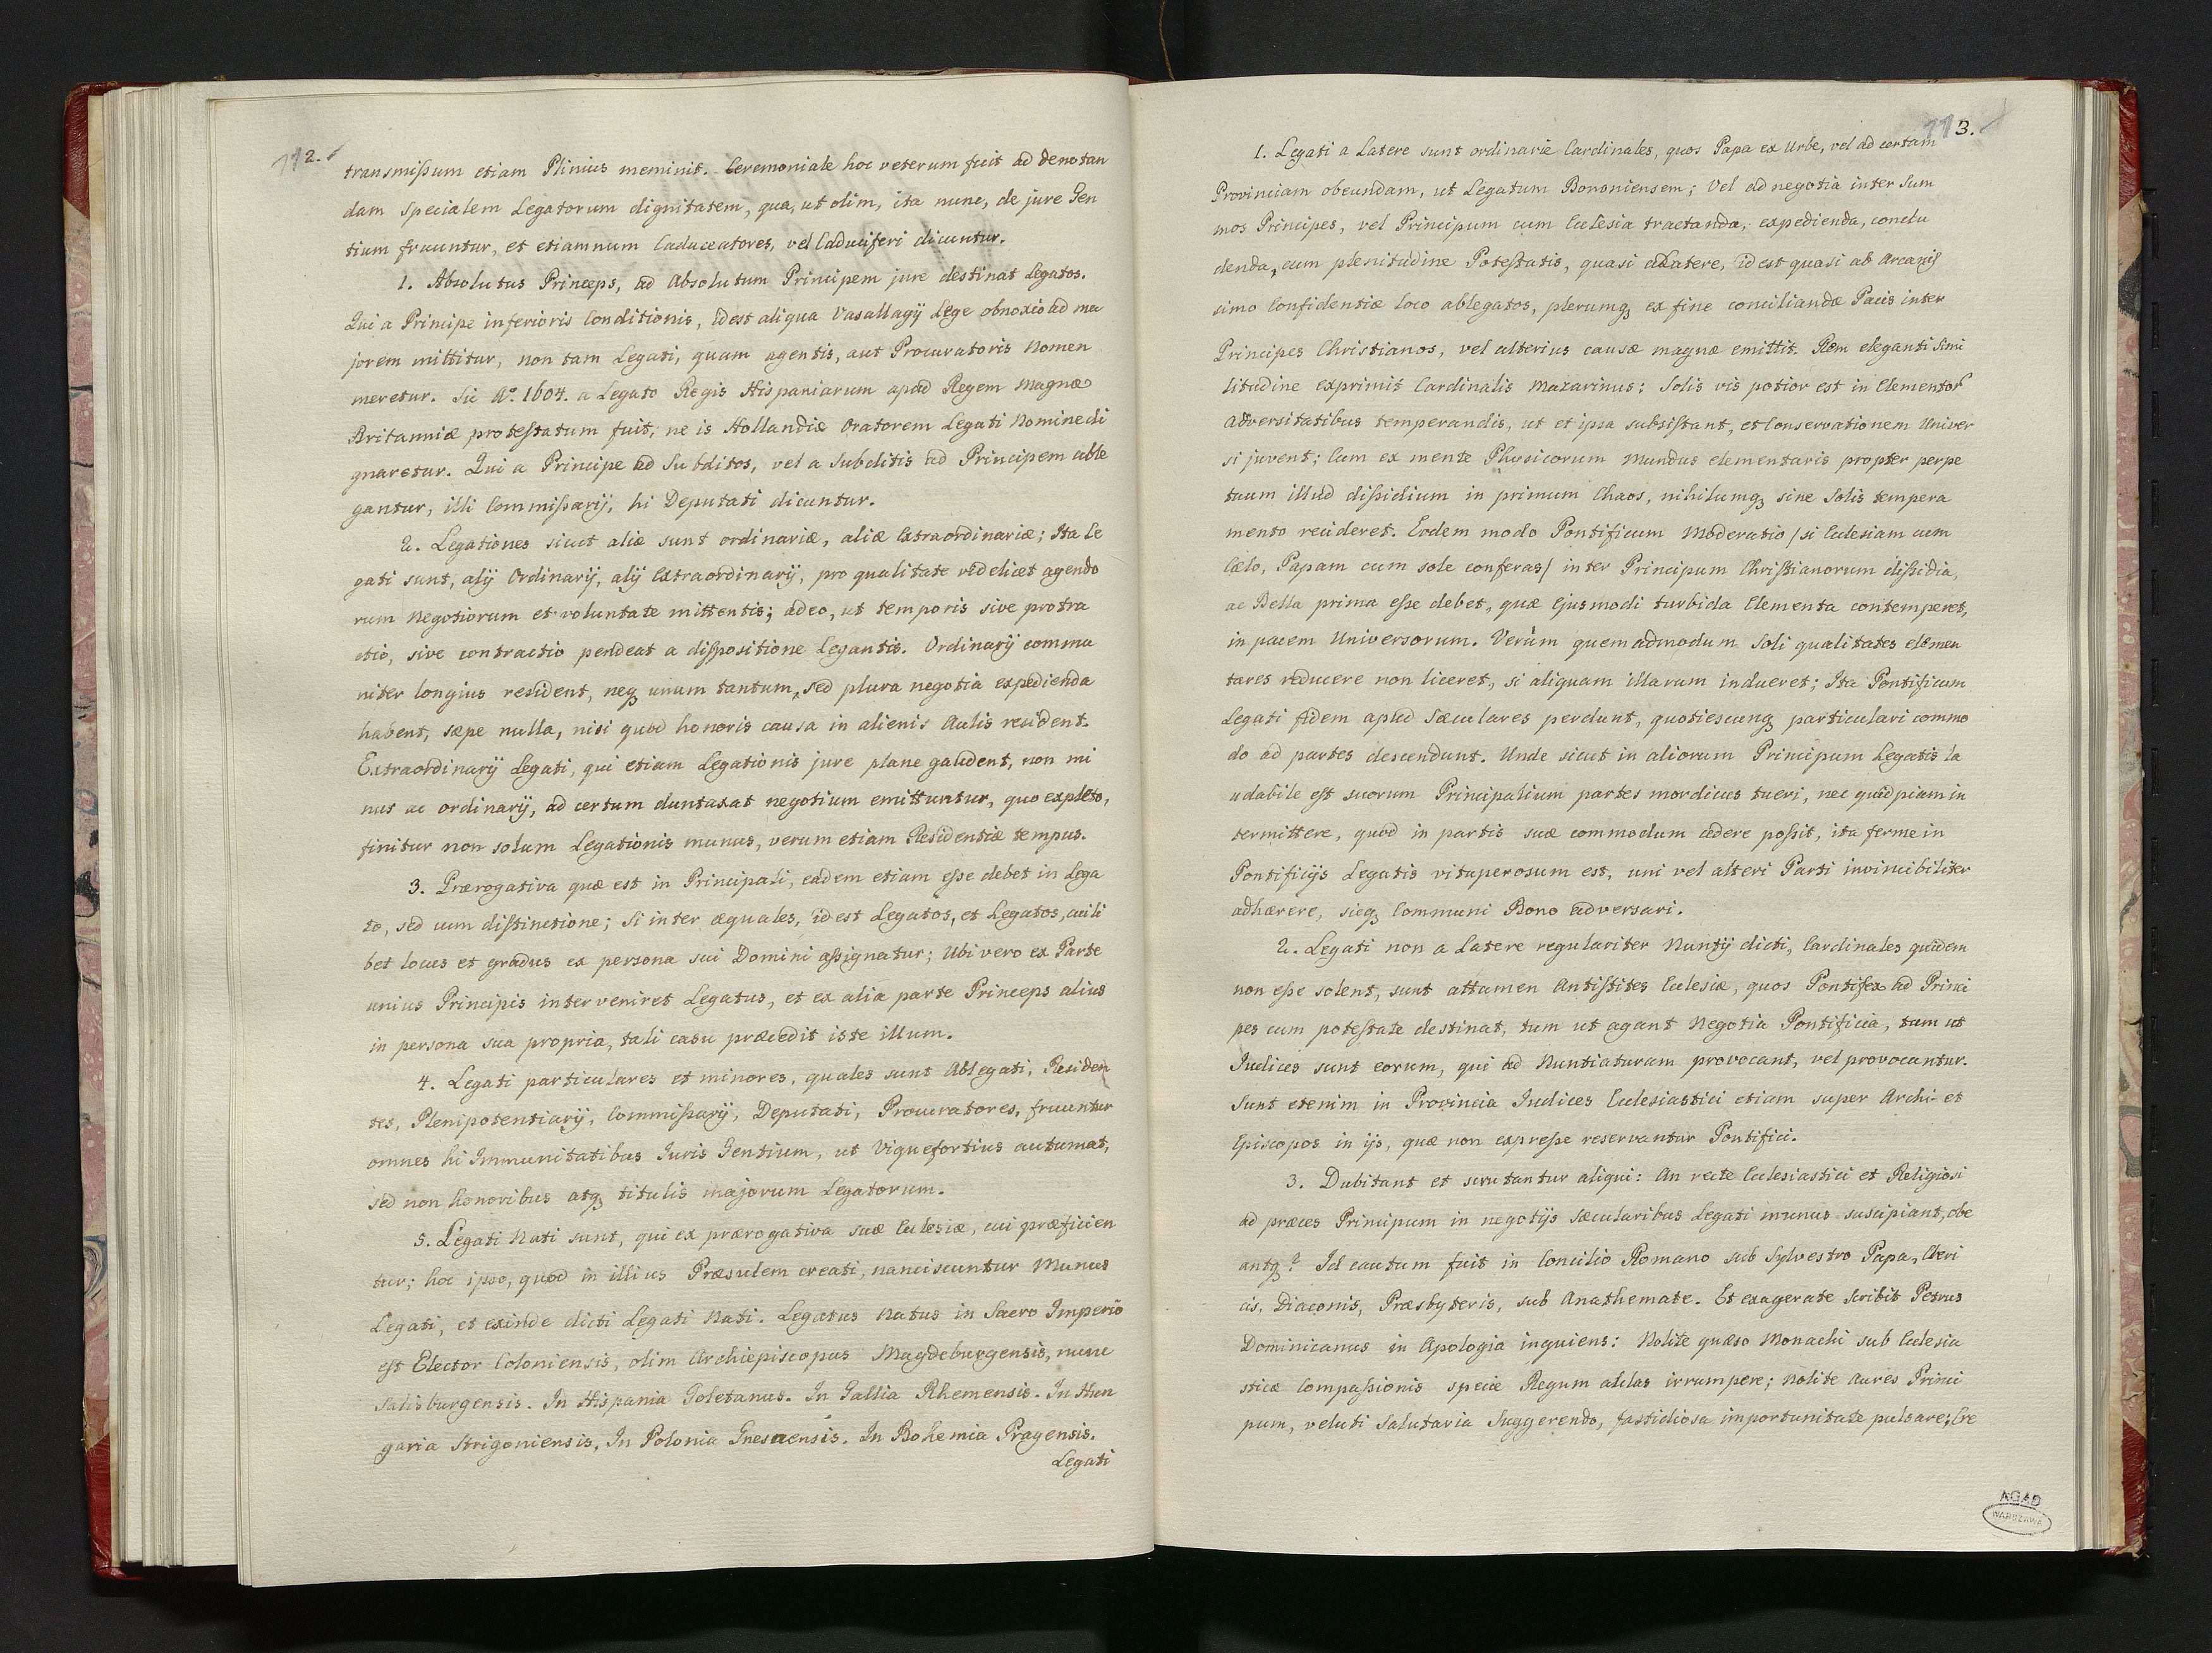 2.
transmißum etiam Plinius meminit. Ceremoniale hoc veterum fuit ad denotan
dam specialem Legatorum dignitatem, qua, ut olim, ita nunc, de jure Gen
tium fruuntur, et etiamnum Caduceatores, vel Caduciferi dicuntur.
1. Absolutus Princeps, ad Absolutum Principem jure destinat Legatos.
Qui a Principe inferioris Conditionis, idest aliqua Vasallagij Lege obnoxio ad ma
jorem mittitur, non tam Legati, quam agentis, aut Procuratoris Nomen
meretur. Sic Aº. 1604. a Legato Regis Hispaniarum apud Regem Magnæ
Britanniæ protestatum fuit, ne is Hollandiæ Oratorem Legati Nomine di
gnaretur. Qui a Principe ad Subditos, vel a Subditis ad Principem able
gantur, illi Commißarij, hi Deputati dicuntur.
2. Legationes sicut aliæ sunt ordinariæ, aliæ Extraordinariæ; Ita Le
gati sunt, alij Ordinarij, alij Extraordinarij, pro qualitate videlicet agendo
rum Negotiorum et voluntate mittentis; adeo, ut temporis sive protra
ctio, sive contractio pendeat a dispositione Legantis. Ordinarij commu
niter longius resident, neq3 unum tantum, sed plura negotia expedienda
habent, sæpe nulla, nisi quod honoris causa in alienis Aulis resident.
Extraordinarij Legati, qui etiam Legationis jure plane gaudent, non mi
nus ac ordinarij, ad certum duntaxat negotium emittuntur, quo expleto,
finitur non solum Legationis munus, verum etiam Residentiæ tempus.
3. Prærogativa quæ est in Principali, eadem etiam eße debet in Lega
to, sed cum distinctione; Si inter æquales, idest Legatos, et Legatos, cuili
bet locus et gradus ex persona sui Domini aßignatur; Ubi vero ex Parte
unius Principis interveniret Legatus, et ex alia parte Princeps alius
in persona sua propria, tali casu præcedit iste illum.
4. Legati particulares et minores, quales sunt Ablegati, Residen
tes, Plenipotentiarij, Commißarij, Deputati, Procuratores, fruuntur
omnes hi Immunitatibus Juris Gentium, ut Viquefortius autumat,
sed non honoribus atq3 titulis majorum Legatorum.
5. Legati Nati sunt, qui ex prærogativa suæ Ecclesiæ, cui præficien
tur; hoc ipso, quod in illius Præsulem creati, nanciscuntur Munus
Legati, et exinde dicti Legati Nati. Legatus Natus in Sacro Imperio
est Elector Coloniensis, olim Archiepiscopus Magdeburgensis, nunc
Salisburgensis. In Hispania Toletanus. In Gallia Rhemensis. In Hun
garia Strigoniensis, In Polonia Gnesnensis. In Bohemia Pragensis.
Legati
3.
1. Legati a Latere sunt ordinarie Cardinales, quos Papa ex Urbe, vel ad certam
Provinciam obeundam, ut Legatum Bononiensem; Vel ad negotia inter Sum
mos Principes, vel Principum cum Ecclesia tractanda, expedienda, conclu
denda, cum plenitudine Potestatis, quasi a Latere, id est quasi ab Arcanis
simo Confidentiæ loco ablegatos, plerumq3 ex fine conciliandæ Pacis inter
Principes Christianos, vel alterius causæ magnæ emittit. Rem eleganti Simi
litudine exprimit Cardinalis Mazarinus: Solis vis potior est in Elementor
adversitatibus temperandis, ut et ipsa subsistant, et Conservationem Univer
si juvent; Cum ex mente Physicorum Mundus elementaris propter perpe
tuum illud dißidium in primum Chaos, nihilumq3 sine Solis tempera
mento recideret. Eodem modo Pontificum Moderatio /si Ecclesiam cum
Cælo, Papam cum sole conferas/ inter Principum Christianorum dißidia,
ac Bella prima eße debet, quæ Ejusmodi turbida Elementa contemperet,
in pacem Universorum. Verùm quemadmodum Soli qualitates elemen
tares reducere non liceret, si aliquam illarum indueret; Ita Pontificum
Legati fidem apud Sæculares perdunt, quotiescunq3 particulari commo
do ad partes descendunt. Unde sicut in aliorum Principum Legatis la
udabile est suorum Principalium partes mordicus tueri, nec quidpiam in
termittere, quod in partis suæ commodum cedere poßit, ita ferme in
Pontificijs Legatis vituperosum est, uni vel alteri Parti invincibiliter
adhærere, sicq3 Communi Bono adversari.
2. Legati non a Latere regulariter Nuntij dicti, Cardinales quidem
non eße solent, sunt attamen Antistites Ecclesiæ, quos Pontifex ad Princi
pes cum potestate destinat, tum ut agant Negotia Pontificia, tum ut
Judices sunt eorum, qui ad Nuntiaturam provocant, vel provocantur.
Sunt etenim in Provincia Judices Ecclesiastici etiam super Archi- et
Episcopos in ijs, quæ non expreße reservantur Pontifici.
3. Dubitant et scrutantur aliqui: An recte Ecclesiastici et Religiosi
ad præces Principum in negotijs sæcularibus Legati munus suscipiant, obe
antq3? Id cautum fuit in Concilio Romano sub Sylvestro Papa, Cleri
cis, Diaconis, Præsbyteris, sub Anathemate. Et exagerate scribit Petrus
Dominicanus in Apologia inquiens: Nolite quæso Monachi sub Ecclesia
sticæ Compaßionis specie Regum aulas irrumpere; nolite aures Princi
pum, veluti Salutaria Suggerendo, fastidiosa importunitate pulsare; Cre
AGAD
WARSZAWA